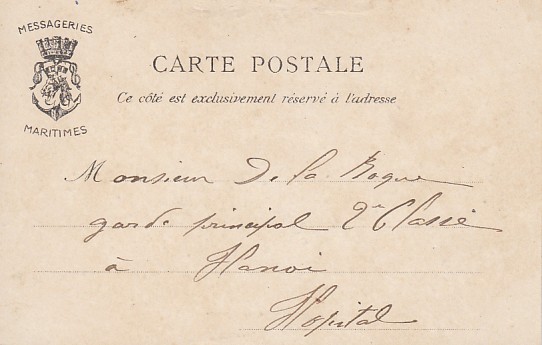 MESSAGERIES
MARITIMES
CARTE POSTALE
Ce côté est exclusivement réservé à l'adresse
Monsieur De la Roque
garde principal 2e Classe
à Hanoi
Hopital